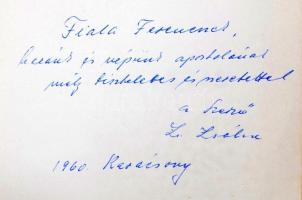 Fiala Ferencnek,
hazánk és népünk apostolának
mély tisztelettel és szeretettel
a szerző
1960. Karácsony